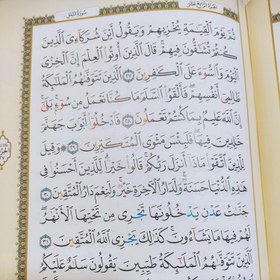 سُورَةُ النَّحْلِ
الجُزْءُ الرَّابِعَ عَشَرَ
ثُمَّ يَوْمَ ٱلْقِيَـٰمَةِ يُخْزِيهِمْ وَيَقُولُ أَيْنَ شُرَكَآءِىَ ٱلَّذِينَ
كُنتُمْ تُشَـٰٓقُّونَ فِيهِمْ قَالَ ٱلَّذِينَ أُوتُوا۟ ٱلْعِلْمَ إِنَّ ٱلْخِزْىَ
ٱلْيَوْمَ وَٱلسُّوٓءَ عَلَى ٱلْكَـٰفِرِينَ ٢٧ ٱلَّذِينَ تَتَوَفَّىٰهُمُ ٱلْمَلَـٰٓئِكَةُ
ظَالِمِىٓ أَنفُسِهِمْ فَأَلْقَوُا۟ ٱلسَّلَمَ مَا كُنَّا نَعْمَلُ مِن سُوٓءٍۭ بَلَىٰٓ
إِنَّ ٱللَّهَ عَلِيمٌۢ بِمَا كُنتُمْ تَعْمَلُونَ ٢٨ فَٱدْخُلُوٓا۟ أَبْوَٰبَ جَهَنَّمَ
خَـٰلِدِينَ فِيهَا فَلَبِئْسَ مَثْوَى ٱلْمُتَكَبِّرِينَ ٢٩ وَقِيلَ
لِلَّذِينَ ٱتَّقَوْا۟ مَاذَآ أَنزَلَ رَبُّكُمْ قَالُوا۟ خَيْرًا لِّلَّذِينَ أَحْسَنُوا۟ فِى
هَـٰذِهِ ٱلدُّنْيَا حَسَنَةٌ وَلَدَارُ ٱلْـَٔاخِرَةِ خَيْرٌ وَلَنِعْمَ دَارُ ٱلْمُتَّقِينَ ٣٠
جَنَّـٰتُ عَدْنٍ يَدْخُلُونَهَا تَجْرِى مِن تَحْتِهَا ٱلْأَنْهَـٰرُ
لَهُمْ فِيهَا مَا يَشَآءُونَ كَذَٰلِكَ يَجْزِى ٱللَّهُ ٱلْمُتَّقِينَ ٣١
ٱلَّذِينَ تَتَوَفَّىٰهُمُ ٱلْمَلَـٰٓئِكَةُ طَيِّبِينَ يَقُولُونَ سَلَـٰمٌ عَلَيْكُمُ